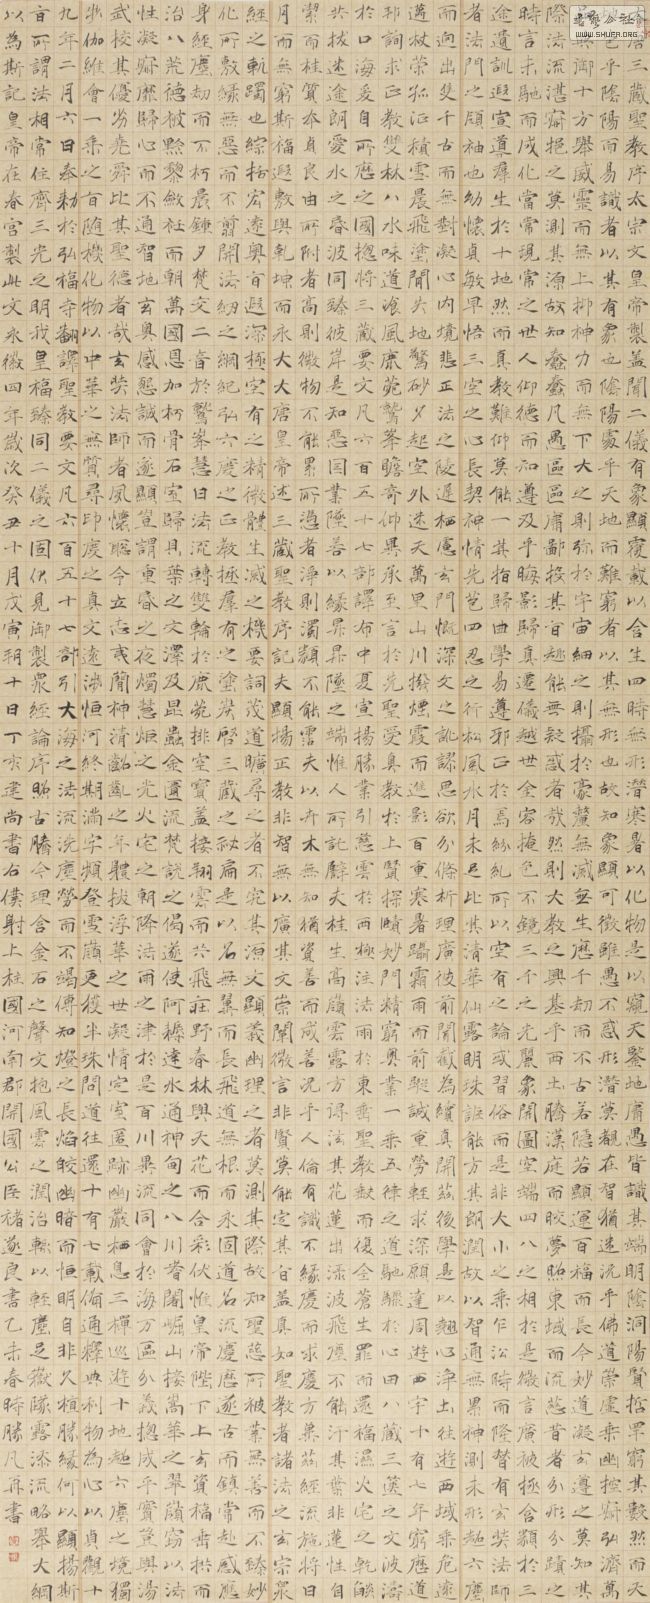 唐三藏聖教序太宗文皇帝製蓋聞二儀有象顯覆載以含生四時無形潛寒暑以化物是以窺天鑒地庸愚皆識其端明陰洞陽賢哲罕窮其數然而天
乎陰陽而易識者以其有象也陰陽處乎天地而難窮者以其無形也故知象顯可徵雖愚不惑形潛莫覩在智猶迷況乎佛道崇虛乘幽控寂弘濟萬
御十方舉威靈而無上抑神力而無下大之則彌於宇宙細之則攝於豪釐無滅無生歷千劫而不古若隱若顯運百福而長今妙道凝玄遵之莫知其
際法流湛寂挹之莫測其源故知蠢蠢凡愚區區庸鄙投其旨趣能無疑惑者哉然則大教之興基乎西土騰漢庭而皎夢照東域而流慈昔者分形分蹟之
時言未馳而成化當常現常之世人仰德而知遵及乎晦影歸真遷儀越世金容掩色不鏡三千之光麗象開圖空端四八之相於是微言廣被拯含類於三
途遺訓遐宣導羣生於十地然而真教難仰莫能一其指歸曲學易遵邪正於焉紛糺所以空有之論或習俗而是非大小之乘乍沿時而隆替有玄奘法師
者法門之領袖也幼懷貞敏早悟三空之心長契神情先苞四忍之行松風水月未足比其清華仙露明珠詎能方其朗潤故以智通無累神測未形超六塵
而迥出隻千古而無對凝心內境悲正法之陵遲栖慮玄門慨深文之訛謬思欲分條析理廣彼前聞截為續真開茲後學是以翹心淨土往遊西域乘危遠
邁杖榮孤征積雪晨飛塗間失地驚砂夕起空外迷天萬里山川撥煙霞而進影百重寒暑躡霜雨而前蹤誠重勞輕求深願達周遊西宇十有七年窮歷道
邦詢求正教雙林八水味道飡風鹿菀鷲峯瞻奇仰異承至言於先聖受真教於上賢探賾妙門精窮奧業一乘五律之道馳驟於心田八藏三篋之文波濤
於口海爰自所歷之國揔將三藏要文凡六百五十七部譯布中夏宣揚勝業引慈雲於西極注法雨於東垂聖教缺而復全蒼生罪而還福濕火宅之乾燄
共拔迷途朗愛水之昏波同臻彼岸是知惡因業墜善以緣昇昇墜之端惟人所託譬夫桂生高嶺雲露方得泫其花蓮出淥波飛塵不能汙其葉非蓮性自
潔而桂質本貞良由所附者高則微物不能累所憑者淨則濁類不能霑夫以卉木無知猶資善而成善況乎人倫有識不緣慶而求慶方冀茲經流施將日
月而無窮斯福遐敷與乾坤而永大大唐皇帝述三藏聖教序記夫顯揚正教非智無以廣其文崇闡微言非賢莫能定其旨蓋真如聖教者諸法之玄宗衆
經之軌躅也綜括宏遠奧旨遐深極空有之精微體生滅之機要詞茂道曠尋之者不究其源文顯義幽理之者莫測其際故知聖慈所被業無善而不臻妙
化所敷緣無惡而不翦開法網之綱紀弘六度之正教拯羣有之塗炭啓三藏之祕扃是以名無翼而長飛道無根而永固道名流慶歷遂古而鎮常赴感應
身經塵劫而不朽晨鍾夕梵交二音於鷲峯慧日法流轉雙輪於鹿菀排空寶蓋接翔雲而共飛莊野春林與天花而合彩伏惟皇帝陛下上玄資福垂拱而
治八荒德被黔黎斂衽而朝萬國恩加朽骨石室歸貝葉之文澤及昆蟲金匱流梵說之偈遂使阿耨達水通神甸之八川耆闍崛山接嵩華之翠嶺竊以法
性凝寂靡歸心而不通智地玄奧感懇誠而遂顯豈謂重昏之夜燭慧炬之光火宅之朝降法雨之津於是百川異流同會於海萬區分義揔成乎實豈與湯
武校其優劣堯舜比其聖德者哉玄奘法師者夙懷聰令立志夷簡神清齠齔之年體拔浮華之世凝情定室匿跡幽巖栖息三禪巡遊十地超六塵之境獨
步伽維會一乘之旨隨機化物以中華之無質尋印度之真文遠涉恒河終期滿字頻登雪嶺更獲半珠問道往還十有七載備通釋典利物為心以貞觀十
九年二月六日奉勅於弘福寺翻譯聖教要文凡六百五十七部引大海之法流洗塵勞而不竭傳知燈之長焰皎幽暗而恒明自非久植勝緣何以顯揚斯
旨所謂法相常住齊三光之明我皇福臻同二儀之固伏見御製衆經論序照古騰今理含金石之聲文抱風雲之潤治輒以輕塵足嶽墜露添流略舉大綱
以為斯記皇帝在春宮製此文永徽四年歲次癸丑十月戊寅朔十日丁亥建尚書右僕射上柱國河南郡開國公臣褚遂良書乙未春時勝凡再書
WWW.SHUFA.ORG